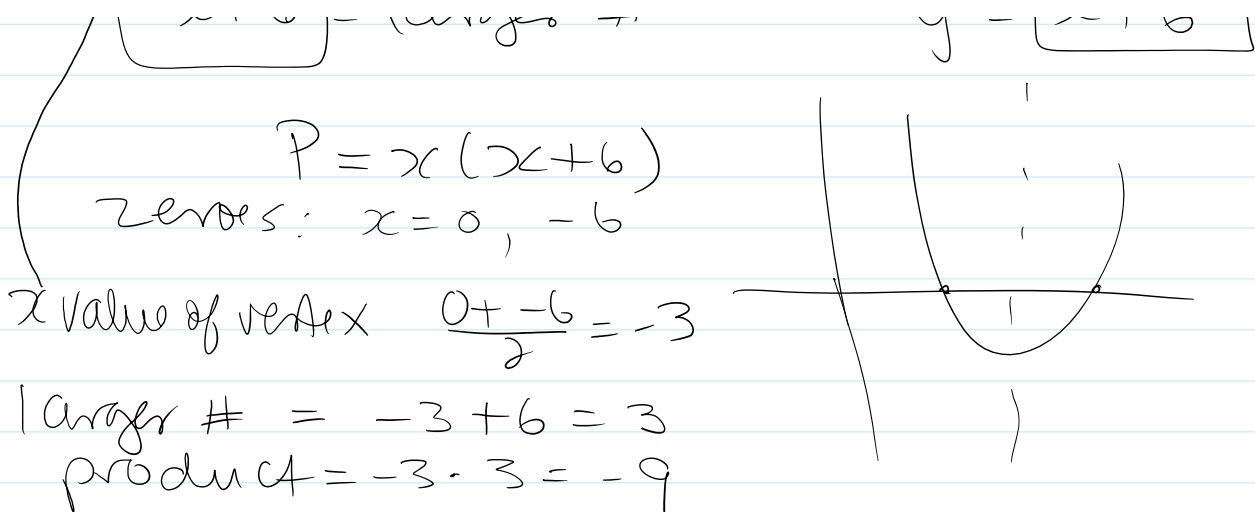 P = x(x+6)
zeroes: x = 0, -6
x value of vertex (0 + -6)/2 = -3
larger # = -3 + 6 = 3
product = -3 · 3 = -9